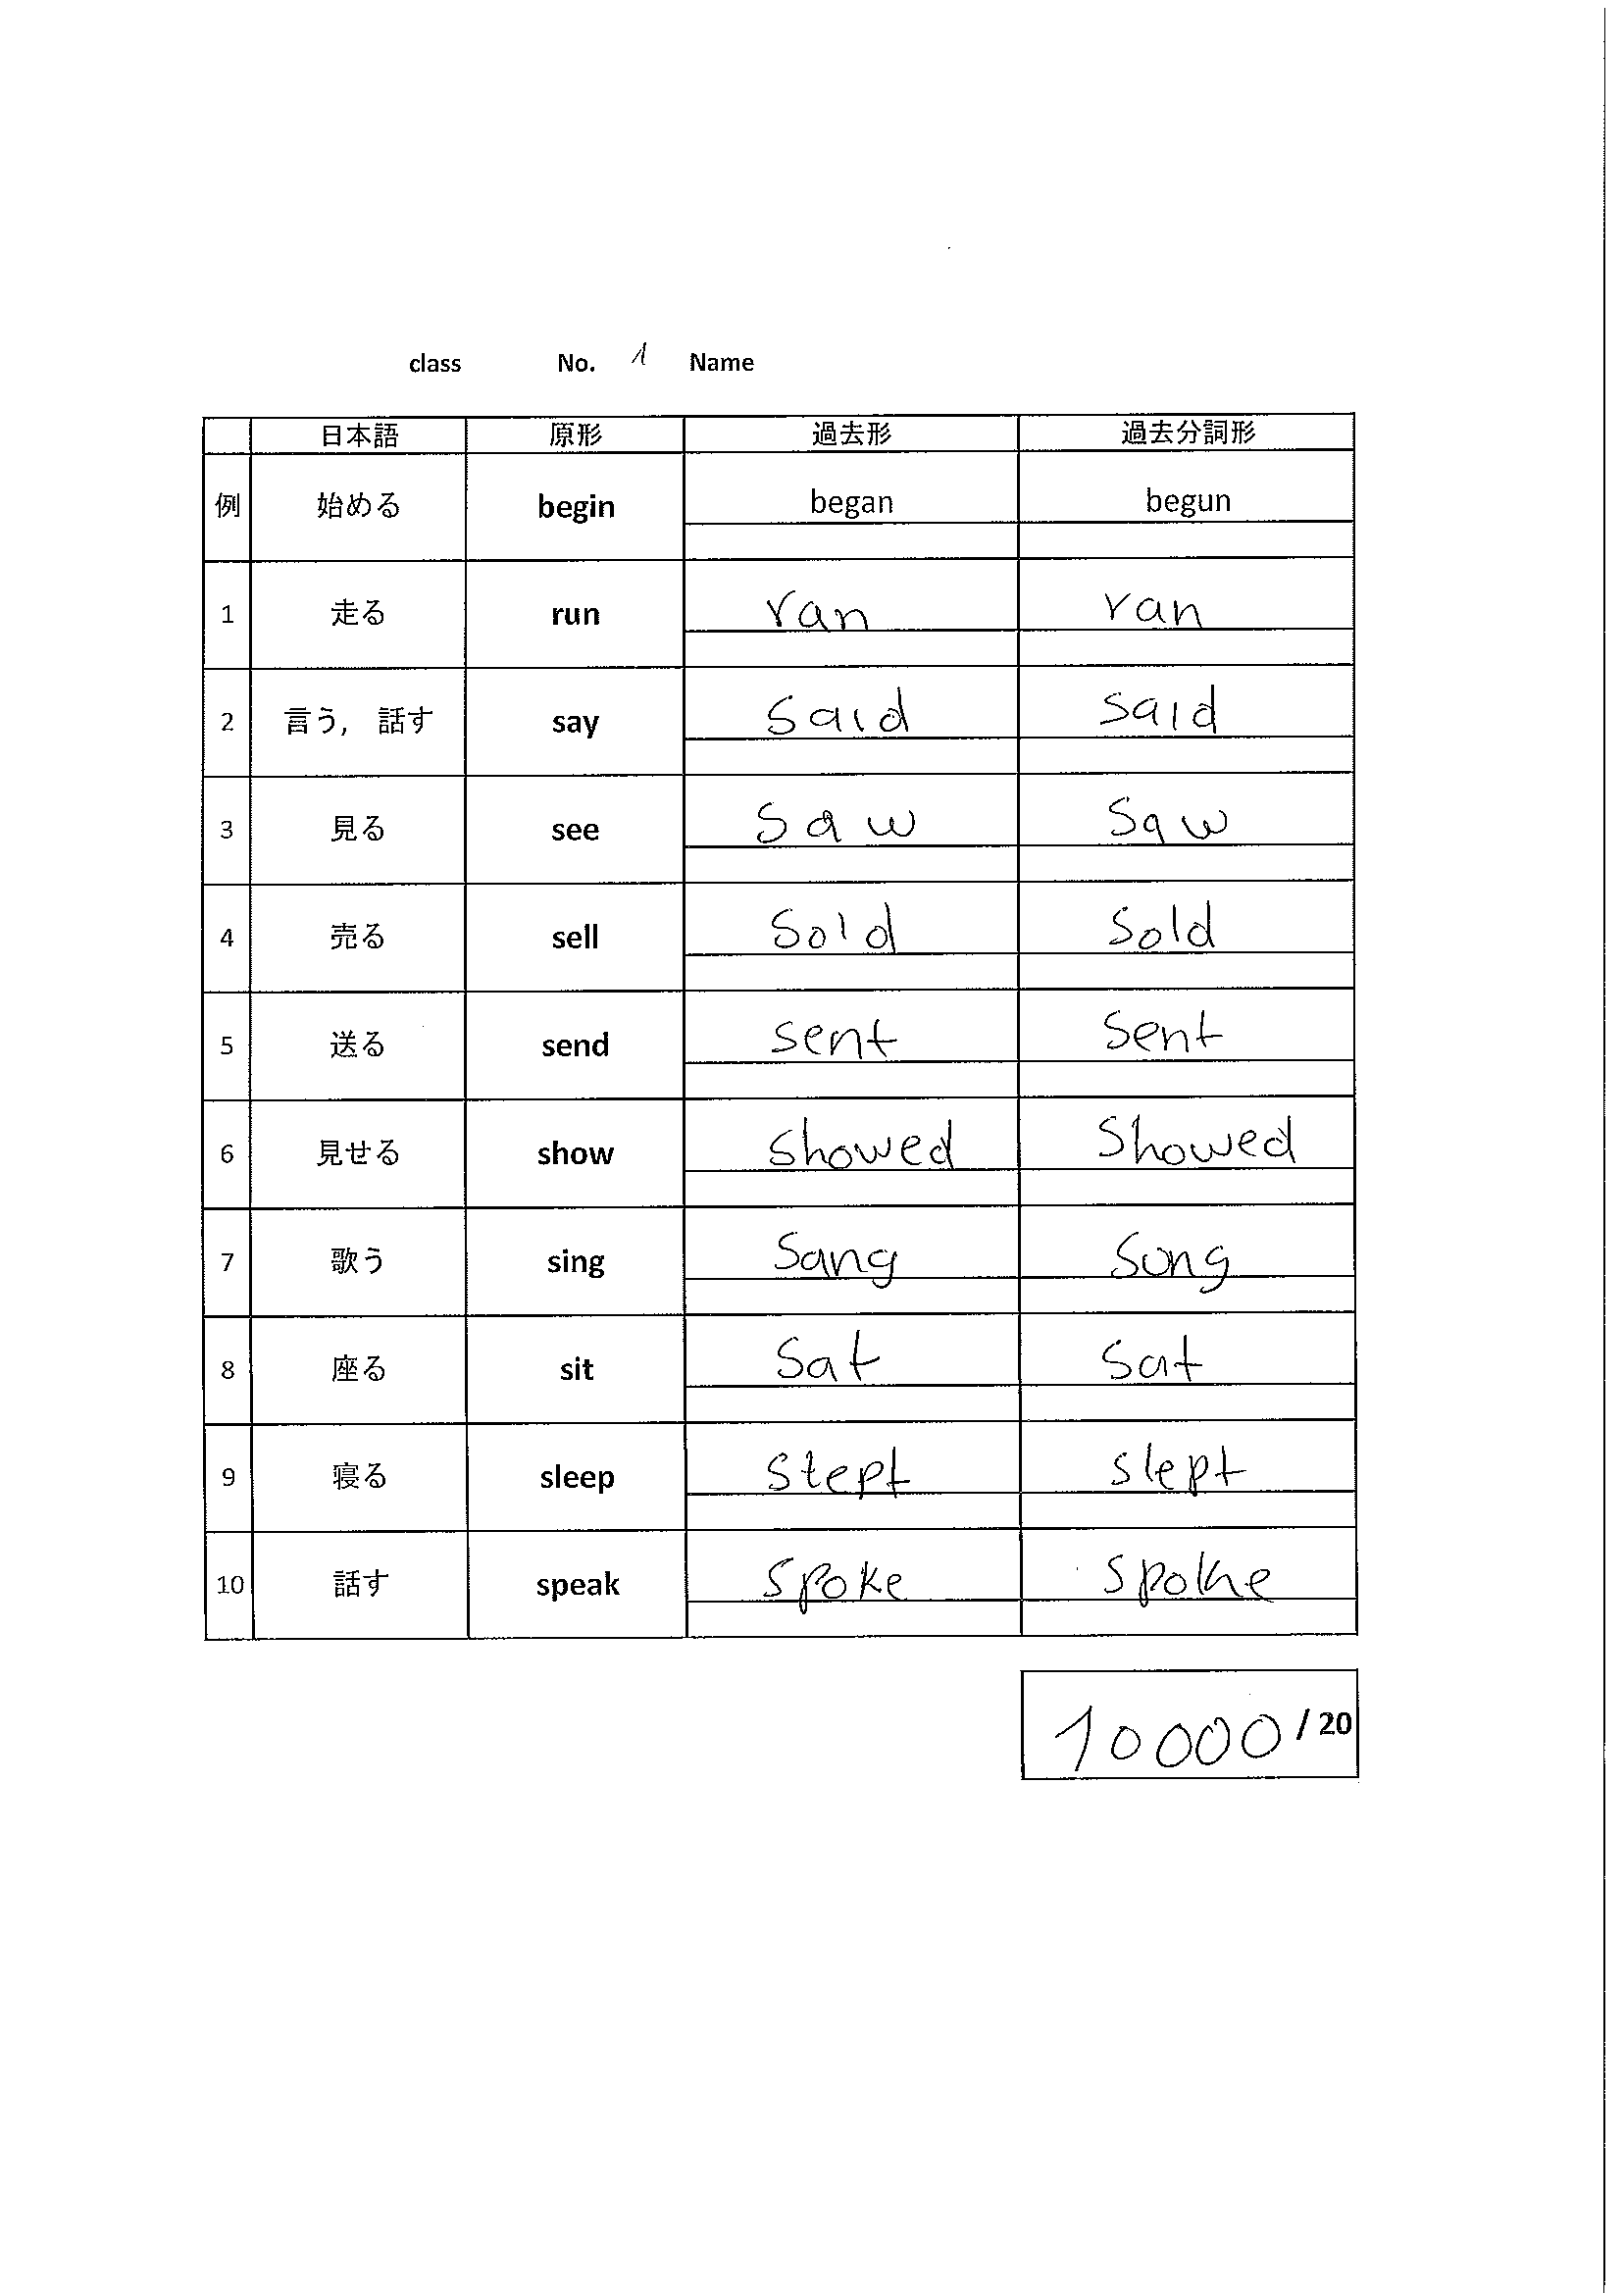 class No. 1 Name
日本語 原形 過去形 過去分詞形
例 始める begin began begun
1 走る run ran ran
2 言う, 話す say said said
3 見る see saw saw
4 売る sell sold sold
5 送る send sent sent
6 見せる show showed showed
7 歌う sing sang song
8 座る sit sat sat
9 寝る sleep stept slept
10 話す speak spoke spoke
10000 / 20